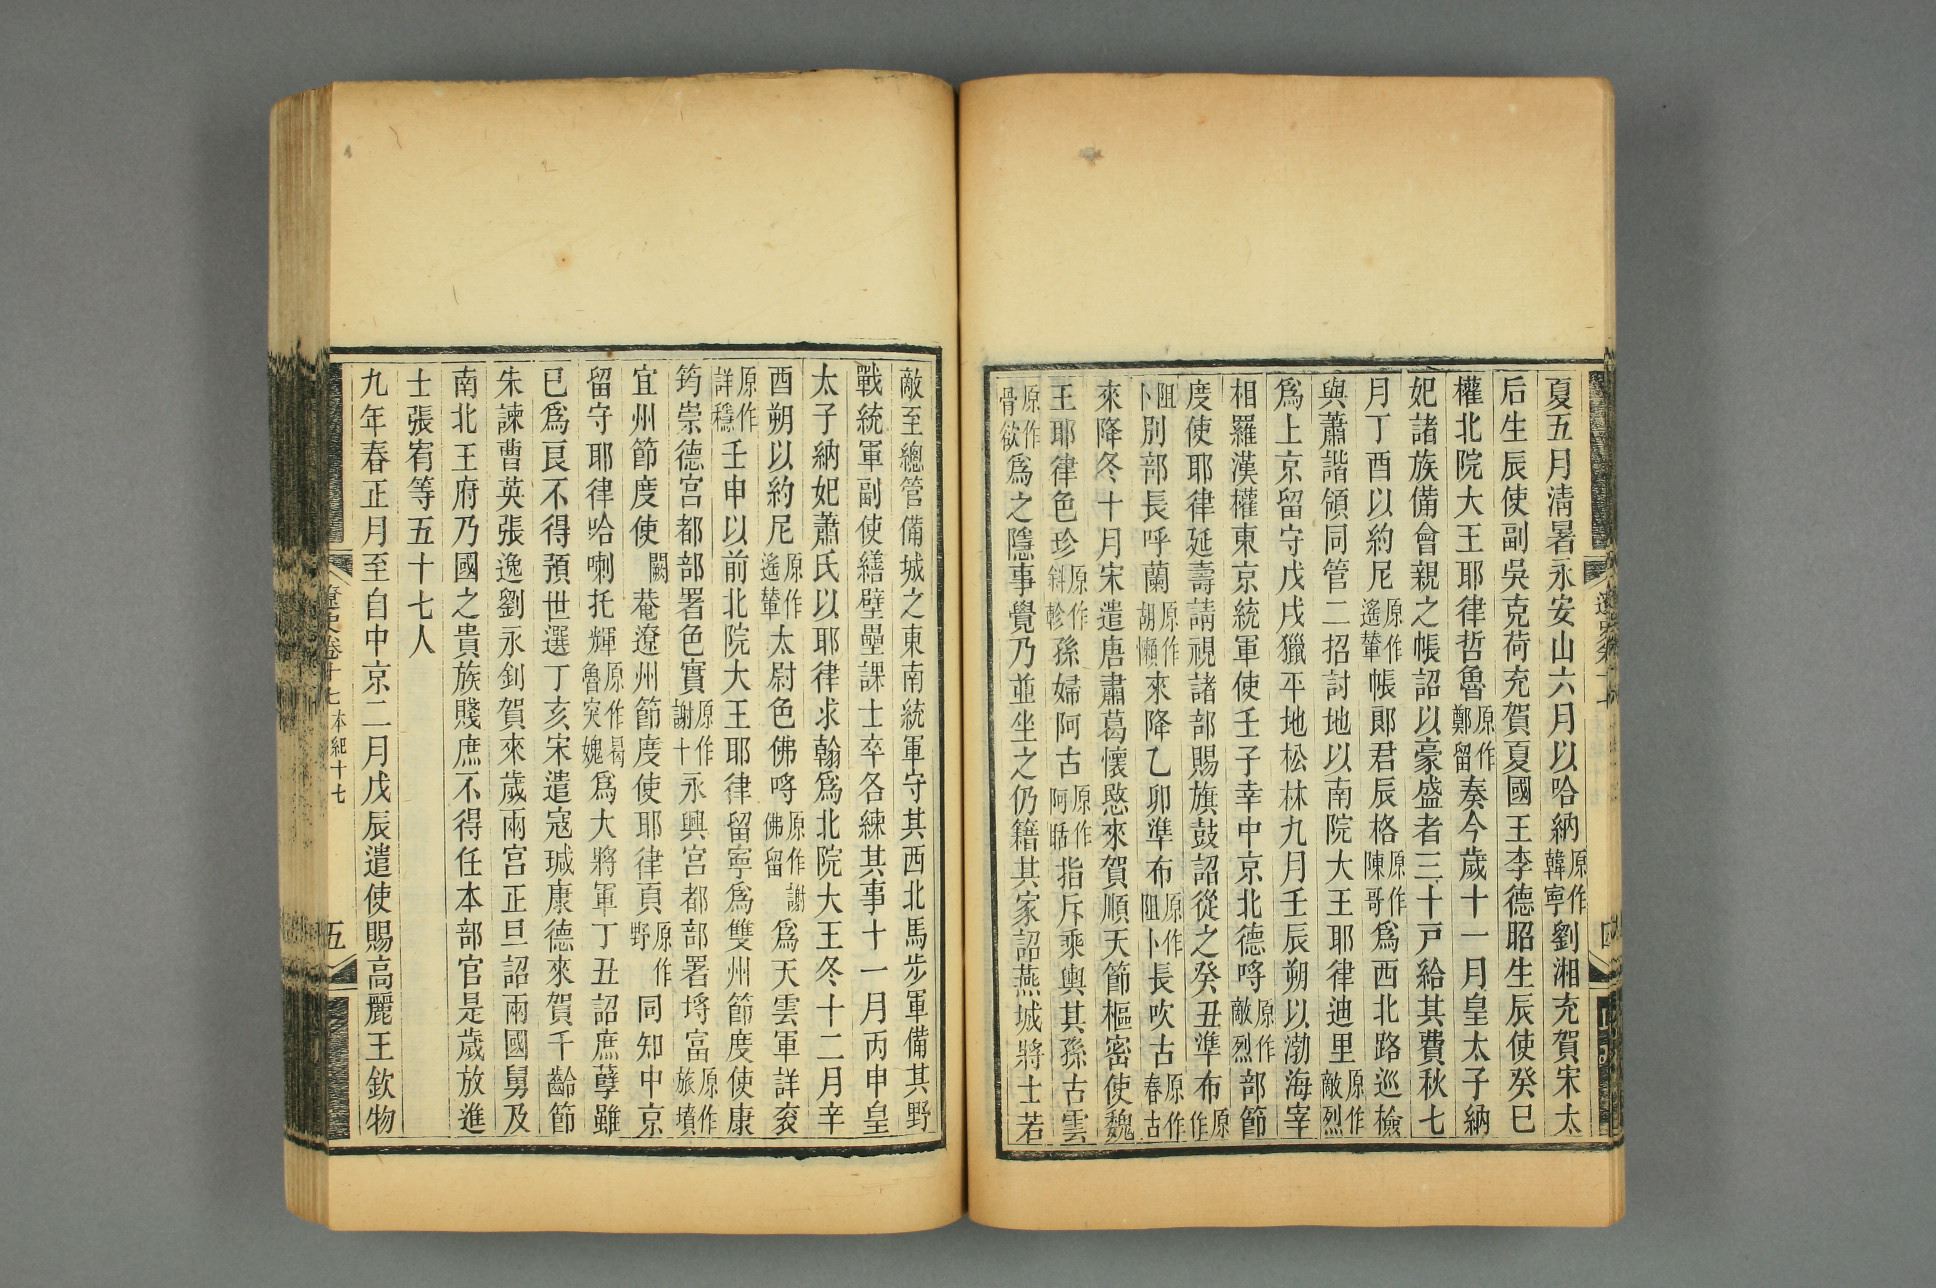 夏五月淸暑永安山六月以哈納原作韓寧劉湘充賀宋太
后生辰使副吳克荷充賀夏國王李德昭生辰使癸巳
權北院大王耶律哲魯原作鄭留奏今歲十一月皇太子納
妃諸族備會親之帳詔以豪盛者三十戸給其費秋七
月丁酉以約尼原作遙輦帳郞君辰格原作陳哥爲西北路巡檢
與蕭諧領同管二招討地以南院大王耶律迪里原作敵烈
爲上京留守戊戌獵平地松林九月壬辰朔以渤海宰
相羅漢權東京統軍使壬子幸中京北德呼原作敵烈部節
度使耶律延壽請視諸部賜旗鼓詔從之癸丑準布原作
阻卜別部長呼蘭原作胡懶來降乙卯準布原作阻卜長吹古原作春古
來降冬十月宋遣唐肅葛懷愍來賀順天節樞密使魏
王耶律色珍原作斜軫孫婦阿古原作阿聒指斥乘輿其孫古雲
原作骨欲爲之隱事覺乃並坐之仍籍其家詔燕城將士若
敵至總管備城之東南統軍守其西北馬步軍備其野
戰統軍副使繕壁壘課士卒各練其事十一月丙申皇
太子納妃蕭氏以耶律求翰爲北院大王冬十二月辛
酉朔以約尼原作遙輦太尉色佛哷原作謝佛留爲天雲軍詳衮
原作詳穩壬申以前北院大王耶律留寧爲雙州節度使康
筠崇德宮都部署色實原作謝十永興宮都部署埒富原作旅墳
宜州節度使闕菴遼州節度使耶律頁原作野同知中京
留守耶律哈喇托輝原作曷魯突媿爲大將軍丁丑詔庶孽雖
已爲良不得預世選丁亥宋遣寇瑊康德來賀千齡節
朱諫曹英張逸劉永釗賀來歲兩宮正旦詔兩國舅及
南北王府乃國之貴族賤庶不得任本部官是歲放進
士張宥等五十七人
九年春正月至自中京二月戊辰遣使賜高麗王欽物
遼史卷十七 本紀十七
五